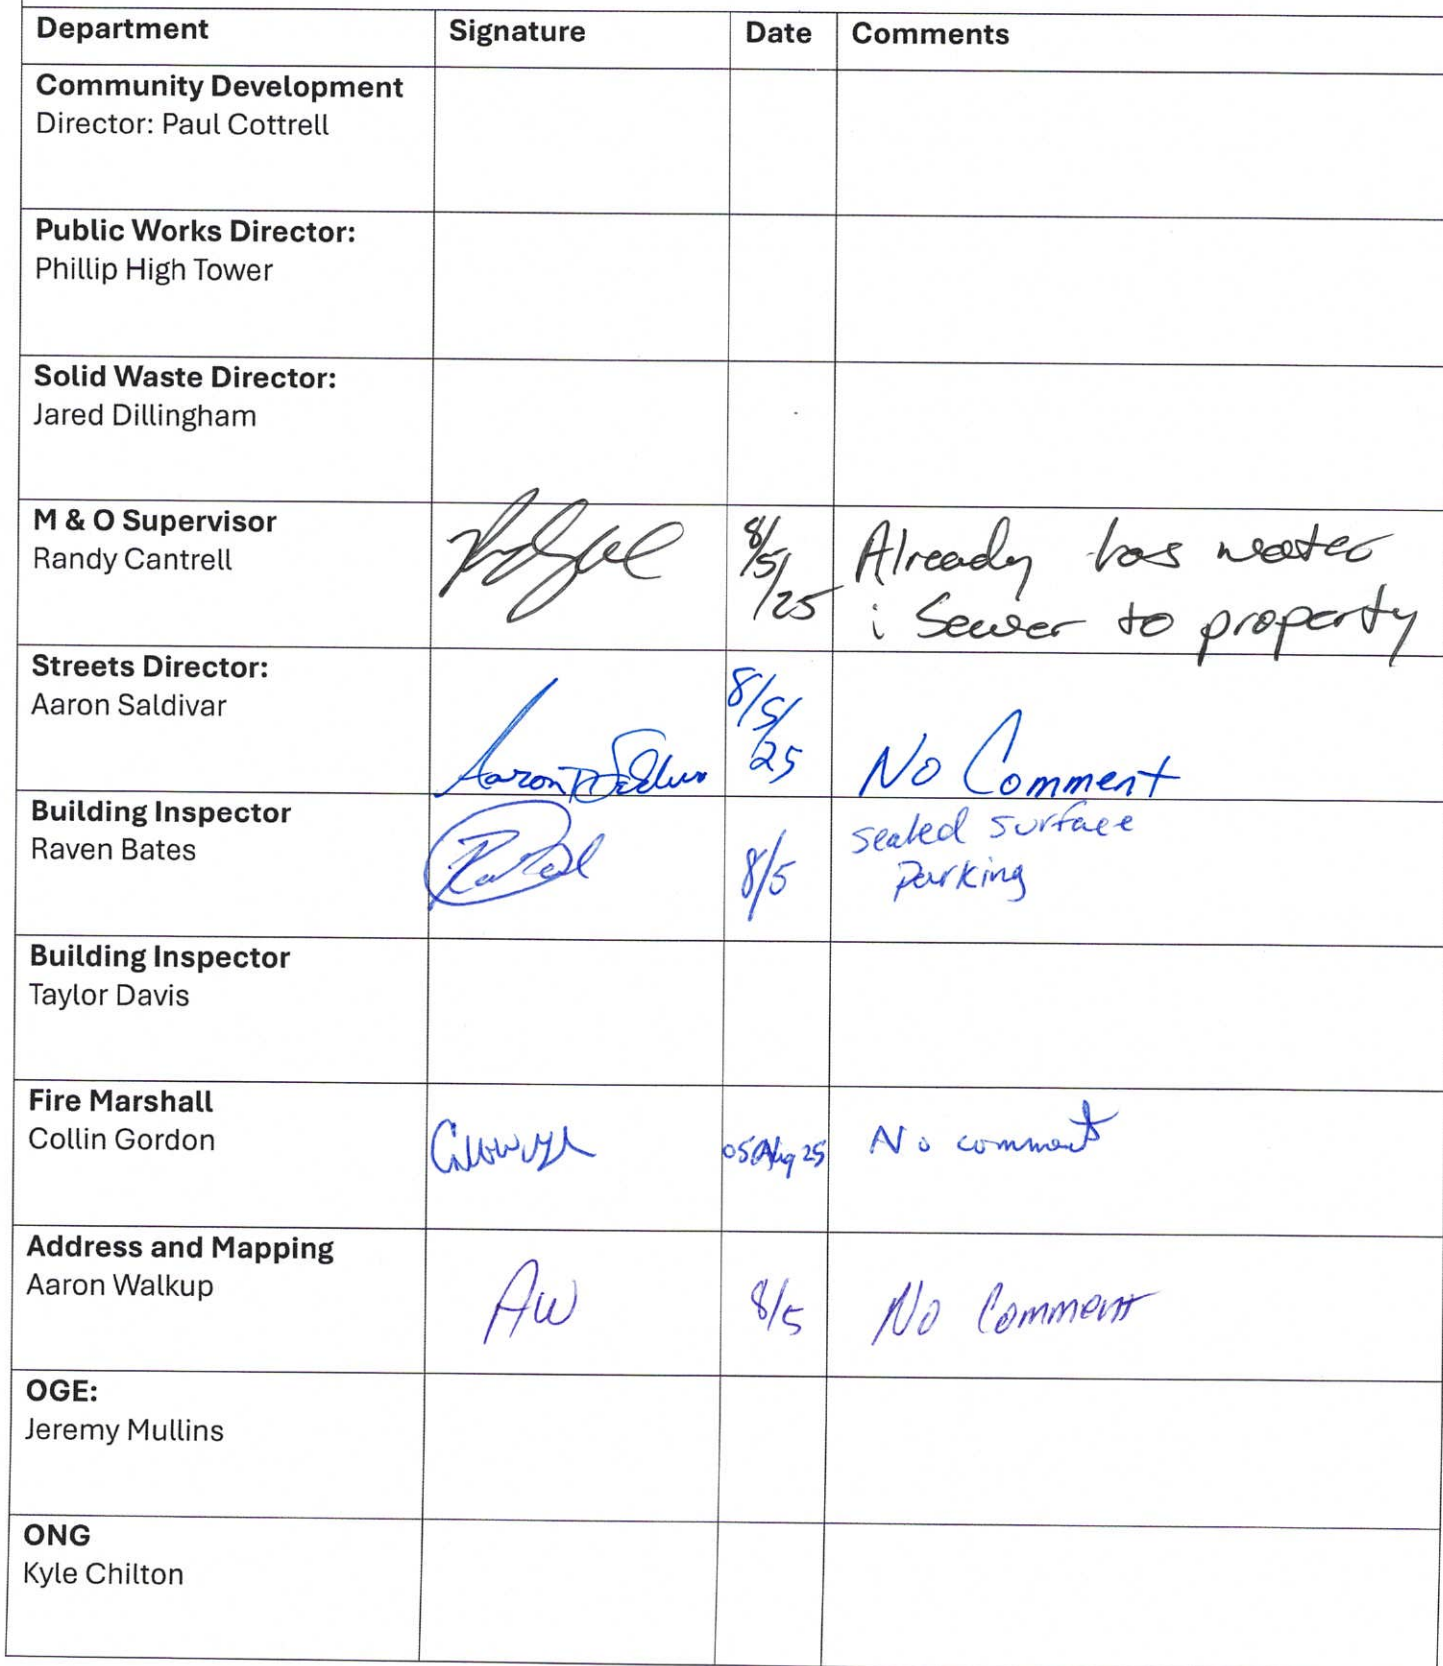 Department Signature Date Comments
Community Development
Director: Paul Cottrell
Public Works Director:
Phillip High Tower
Solid Waste Director:
Jared Dillingham
M & O Supervisor
Randy Cantrell
8/5/25
Already has water
& Sewer to property
Streets Director:
Aaron Saldivar
Aaron
8/5/25
No Comment
Building Inspector
Raven Bates
8/5
sealed surface
parking
Building Inspector
Taylor Davis
Fire Marshall
Collin Gordon
05Aug25
No comment
Address and Mapping
Aaron Walkup
AW
8/5
No Comment
OGE:
Jeremy Mullins
ONG
Kyle Chilton